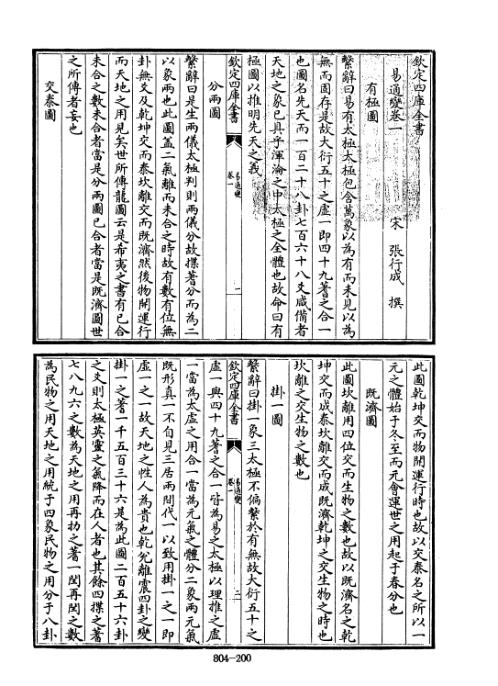 欽定四庫全書
易通變卷一
宋 張行成 撰
有極圖
繫辭曰易有太極太極包含萬象以為有而未見以為
無而固存是故大衍五十之虛一即四十九蓍之合一
也圖名先天而一百二十八卦七百六十八爻咸備者
天地之象已具乎渾淪之中太極之全體也故命曰有
極圖以推明先天之義
欽定四庫全書
易通變
卷一
二
分兩圖
繫辭曰是生兩儀太極判則兩儀分故揲蓍分而為二
以象兩也此圖蓋二氣離而未合之時故有數有位無
卦無爻及乾坤交而泰坎離交而既濟然後物開運行
而天地之用見矣世所傳龍圖云是希夷之書有已合
未合之數未合者當是分兩圖已合者當是既濟圖世
之所傳者妄也
交泰圖
此圖乾坤交而物開運行時也故以交泰名之所以一
元之體始于冬至而元會運世之用起于春分也
既濟圖
此圖坎離用四位交而生物之數也故以既濟名之乾
坤交而成泰坎離交而成既濟乾坤之交生物之時也
坎離之交生物之數也
掛一圖
繫辭曰掛一象三太極不偏繫於有無故大衍五十之
欽定四庫全書
易通變
卷一
二
虛一與四十九蓍之合一皆為易之太極以理推之虛
一當為太虛之用合一當為元氣之體分二象兩元氣
既形真一不自見三居兩間代一以致用掛一之一即
虛一之一故天地之性人為貴也乾兌離震四卦之變
掛一之蓍一千五百三十六是為此圖二百五十六卦
之爻則太極英靈之氣降而在人者也其餘四揲之蓍
七八九六之數為天地之用再扐之蓍一閏再閏之數
為民物之用天地之用統于四象民物之用分于八卦
804-200